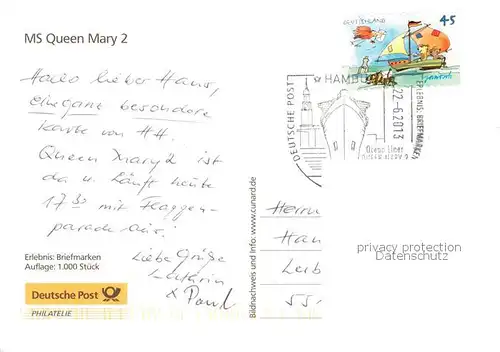 MS Queen Mary 2
Hallo lieber Hans,
eine ganz besondere
Karte von HH.
Queen Mary 2 ist
da u. läuft heute
17 30 mit Flaggen-
parade aus!
Liebe Grüße
Kathrin
& Paul
Erlebnis: Briefmarken
Auflage: 1.000 Stück
Deutsche Post
PHILATELIE
Bildnachweis und Info: www.cunard.de
DEUTSCHLAND 45
Janosch
DEUTSCHE POST
HAMBURG
22-6.2013
ERLEBNIS: BRIEFMARKEN
Ocean Liner
QUEEN MARY 2
Herrn
Han
Leib
55
privacy protection
Datenschutz